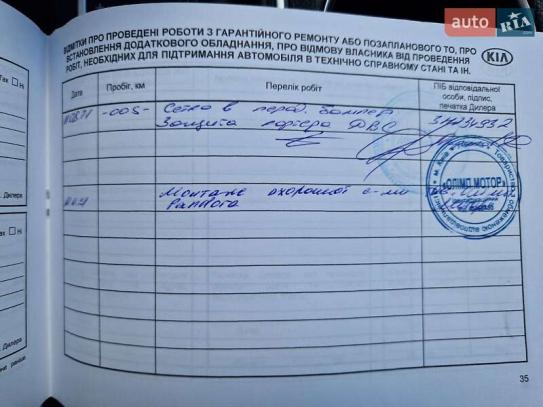 auto RIA.com
ВІДМІТКИ ПРО ПРОВЕДЕНІ РОБОТИ З ГАРАНТІЙНОГО РЕМОНТУ АБО ПОЗАПЛАНОВОГО ТО, ПРО
ВСТАНОВЛЕННЯ ДОДАТКОВОГО ОБЛАДНАННЯ, ПРО ВІДМОВУ ВЛАСНИКА ВІД ПРОВЕДЕННЯ
РОБІТ, НЕОБХІДНИХ ДЛЯ ПІДТРИМАННЯ АВТОМОБІЛЯ В ТЕХНІЧНО СПРАВНОМУ СТАНІ ТА ІН.
KIA
Дата
Пробіг, км
Перелік робіт
ПІБ відповідальної
особи, підпис,
печатка Дилера
-005-
Сетка в перед. бампер
Защита картера ДВС
Монтаж охоронної с-ми
Pandora
ОЛІМП МОТОР
Ні
Дилера
Ні
Дилера
35